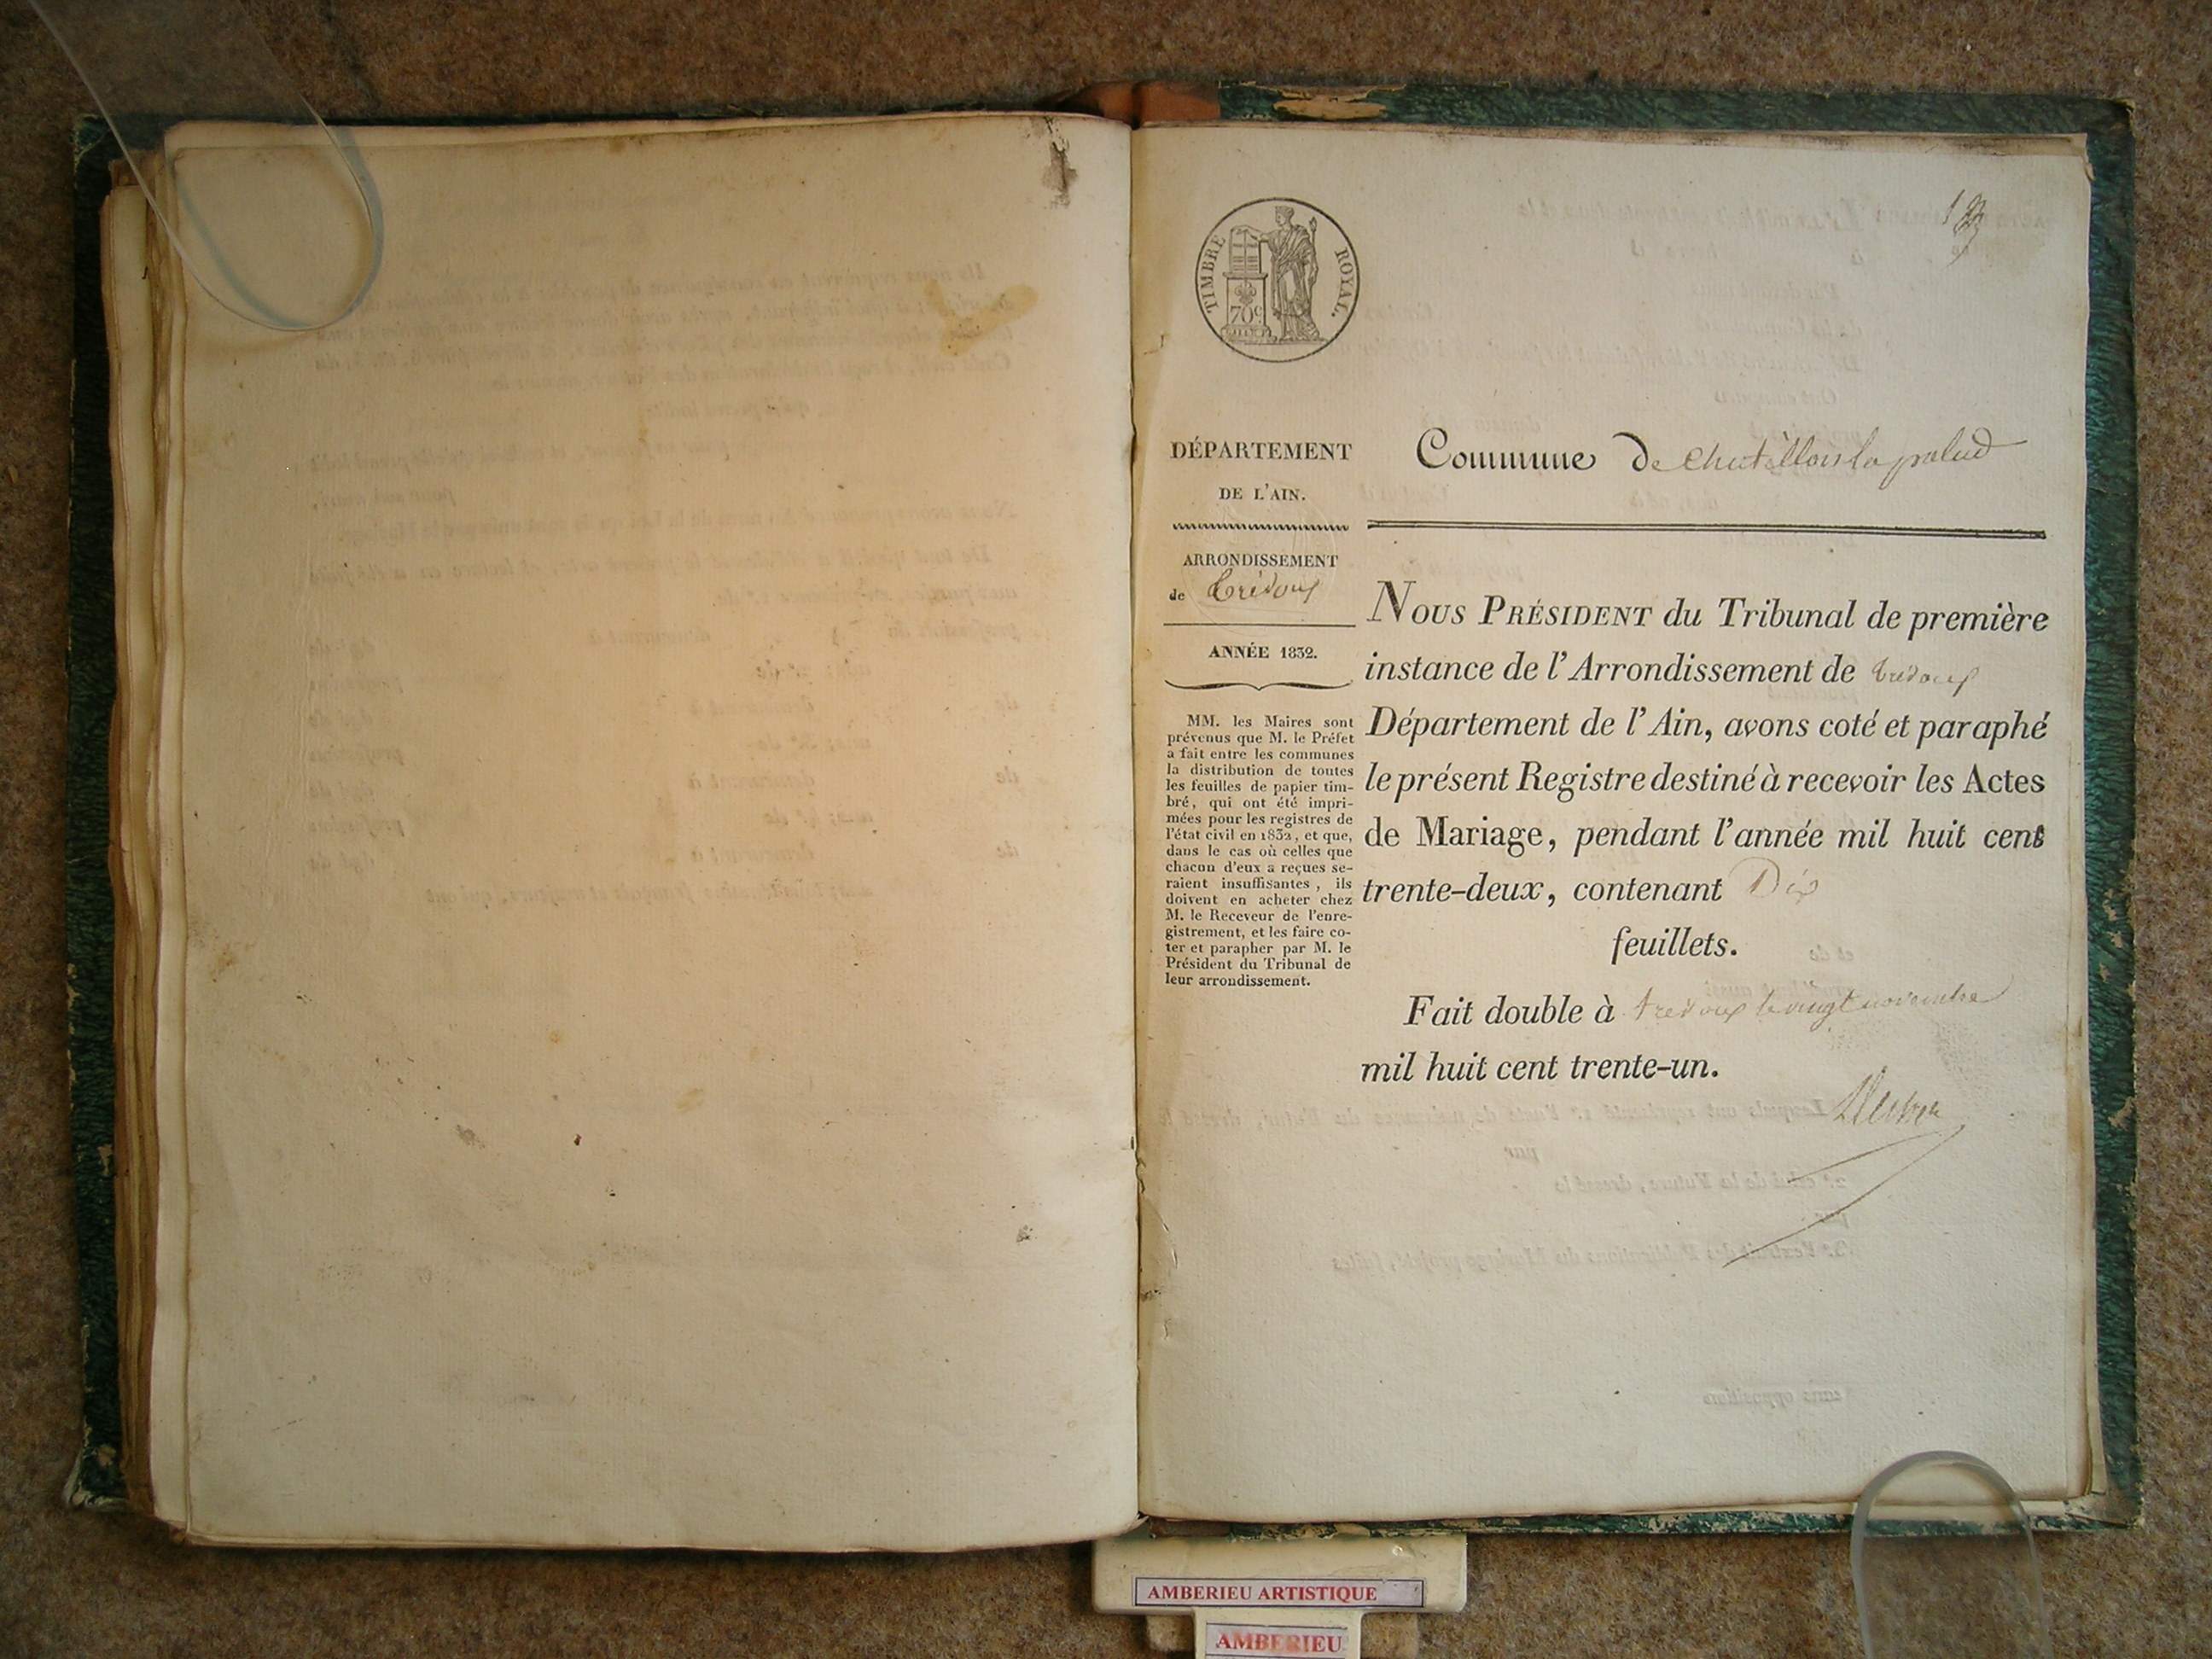 TIMBRE ROYAL.
70c
DÉPARTEMENT
DE L'AIN.
ARRONDISSEMENT
de trévoux
ANNÉE 1832.
MM. les Maires sont
prévenus que M. le Préfet
a fait entre les communes
la distribution de toutes
les feuilles de papier tim-
bré, qui ont été impri-
mées pour les registres de
l'état civil en 1832, et que,
dans le cas où celles que
chacun d'eux a reçues se-
raient insuffisantes, ils
doivent en acheter chez
M. le Receveur de l'enre-
gistrement, et les faire co-
ter et parapher par M. le
Président du Tribunal de
leur arrondissement.
Commune de chatillon la palud
NOUS PRÉSIDENT du Tribunal de première
instance de l'Arrondissement de trévoux
Département de l'Ain, avons coté et paraphé
le présent Registre destiné à recevoir les Actes
de Mariage, pendant l'année mil huit cent
trente-deux, contenant Dix
feuillets.
Fait double à trévoux le vingt novembre
mil huit cent trente-un.
AMBERIEU ARTISTIQUE
AMBERIEU